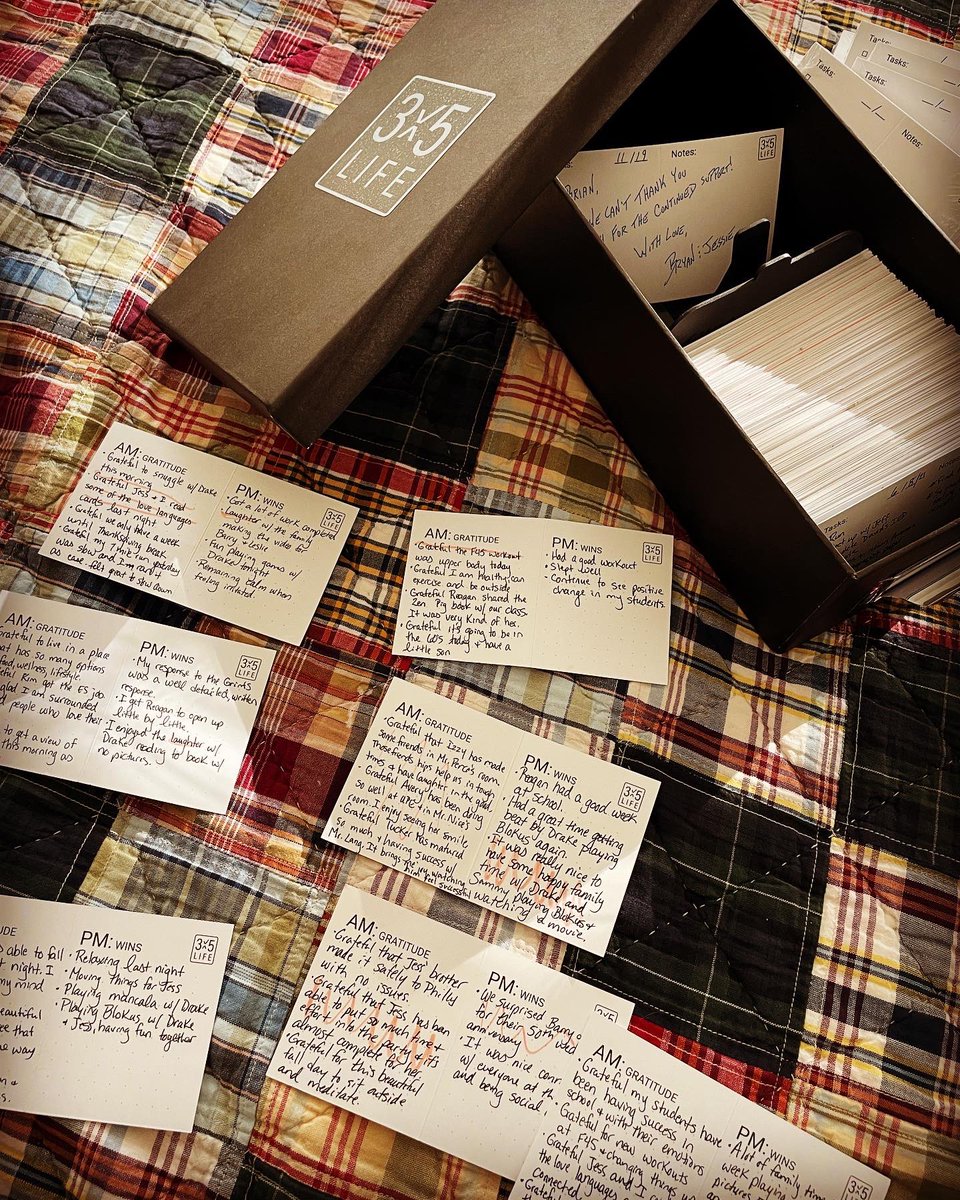 3x5
LIFE
11/19 Notes:
3x5
LIFE
BRIAN,
WE CAN'T THANK YOU
FOR THE CONTINUED SUPPORT!
WITH LOVE,
BRYAN & JESSIE
Tasks:
Tasks:
Tasks:
Notes:
Notes
Tasks:
AM: GRATITUDE
• Grateful to snuggle w/ Drake
this morning
• Grateful Jess & I read
some of the love languages
cards last night
• Grateful we only have a week
until Thanksgiving break
• Grateful my
was slow and I'm
felt great to slow down
PM: WINS
3x5
LIFE
• Got a lot of work completed
• Laughter w/ the family
making the video for
Barry & Leslie
• Fun playing games w/
Drake tonight
• Remaining calm when
feeling irritated.
AM: GRATITUDE
• Grateful the F45 workout
was upper body today
• Grateful I am healthy, can
exercise and be outside
• Grateful Reagan shared the
Zen Pig book w/ our class.
It was very kind of her.
• Grateful it's going to be in
the 60's today & have a
little son
PM: WINS
3x5
LIFE
• Had a good workout
• Slept well
• Continue to see positive
change in my students.
AM: GRATITUDE
Grateful to live in a place
that has so many options
food, wellness, lifestyle.
Kim got the ES job
glad I am surrounded
people who love their
to get a view of
this morning as
PM: WINS
3x5
LIFE
• My response to the Grants
was a well detailed, written
response.
• I got Reagan to open up
little by little.
• I enjoyed the laughter w/
Drake reading to book w/
no pictures.
AM: GRATITUDE
• Grateful that Izzy has made
some friends in Mr. room.
Those friendships help us in tough
times & have laughter in the good.
• Grateful Avery has been doing
so well at APC in Mr. Nice's
room. I enjoy seeing her smile
• Grateful Tucker has matured
so much & having success w/
Mr. Lang. It brings me joy watching
him feel successful
PM: WINS
3x5
LIFE
• Reagan had a good week
at school.
• Had a great time getting
beat by Drake playing
Blokus again.
• It was really nice to
have some happy family
time w/ Drake and
Sammy playing Blokus &
watching a movie.
able to fall
night. I
my mind
beautiful
that
way
PM: WINS
3x5
LIFE
• Relaxing last night
• Moving things for Jess
• Playing mancala w/ Drake
• Playing Blokus w/ Drake
& Jess, having fun together
AM: GRATITUDE
• Grateful that Jess' brother
made it safely to Philly
with no issues.
• Grateful that Jess has been
able to put so much time &
effort into the party & it's
almost complete for her
• Grateful for this beautiful
fall day to sit outside
and meditate.
PM: WINS
3x5
• We surprised Barry &
for their 50th wedd
anniversary
• It was nice conn
w/ everyone at th
and being social.
AM: GRATITUDE
• Grateful my students have
been having success in
school & with their emotions
• Grateful for new workouts
at F45 & changing things u
• Grateful Jess and I
the love languages
connected
• Grateful
PM: WINS
3x5
LIFE
• A lot of family tim
week playin
pictures